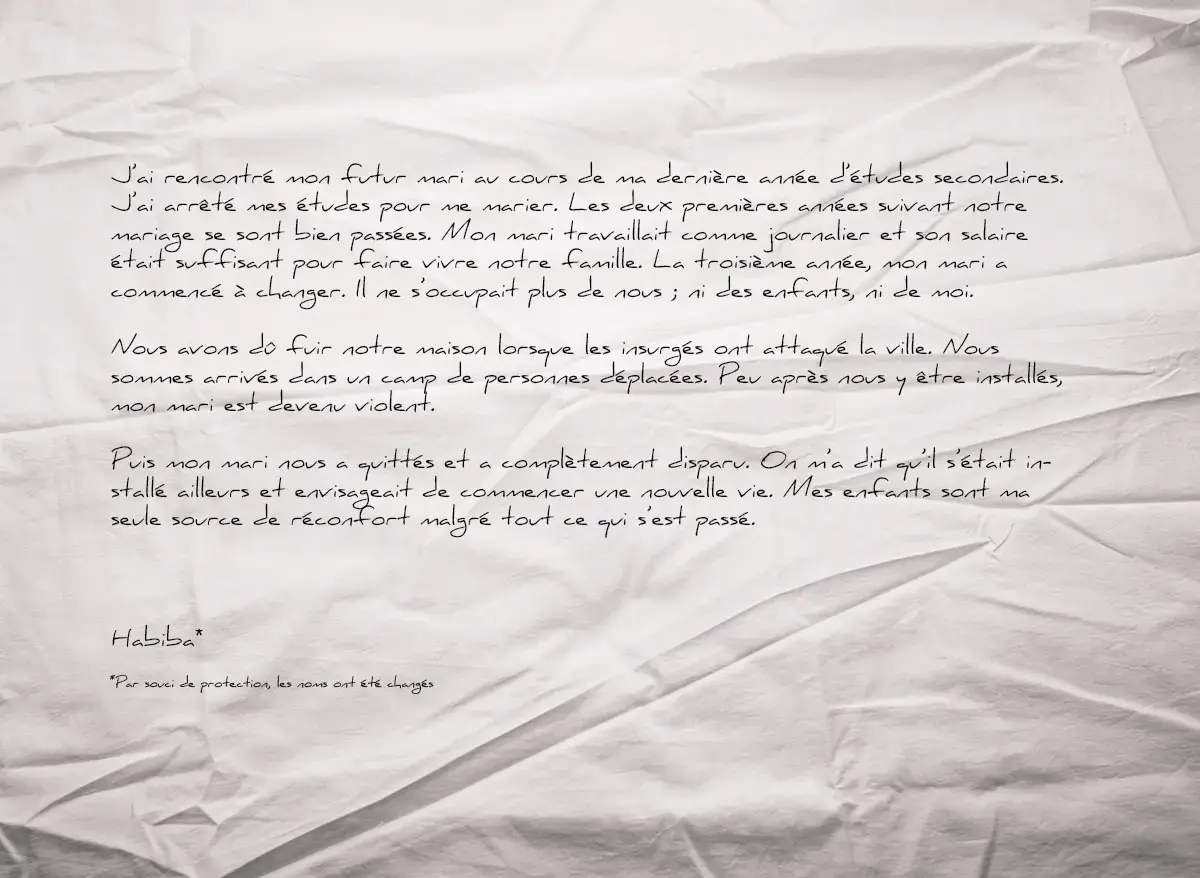 J'ai rencontré mon futur mari au cours de ma dernière année d'études secondaires.
J'ai arrêté mes études pour me marier. Les deux premières années suivant notre
mariage se sont bien passées. Mon mari travaillait comme journalier et son salaire
était suffisant pour faire vivre notre famille. La troisième année, mon mari a
commencé à changer. Il ne s'occupait plus de nous ; ni des enfants, ni de moi.
Nous avons dû fuir notre maison lorsque les insurgés ont attaqué la ville. Nous
sommes arrivés dans un camp de personnes déplacées. Peu après nous y être installés,
mon mari est devenu violent.
Puis mon mari nous a quittés et a complètement disparu. On m'a dit qu'il s'était in-
stallé ailleurs et envisageait de commencer une nouvelle vie. Mes enfants sont ma
seule source de réconfort malgré tout ce qui s'est passé.
Habiba*
*Par souci de protection, les noms ont été changés